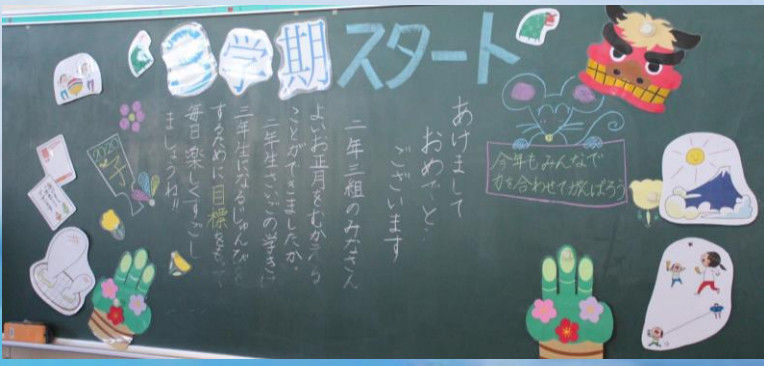 三学期スタート
あけまして
おめでと
ございます
二年三組のみなさん
よいお正月をむかえる
ことができましたか。
二年生さいごの学きに
三年生になるじゅんびを
するために目標をもって
毎日楽しくすごし
ましょうね!!
今年もみんなで
力を合わせてがんばろう
2020
子